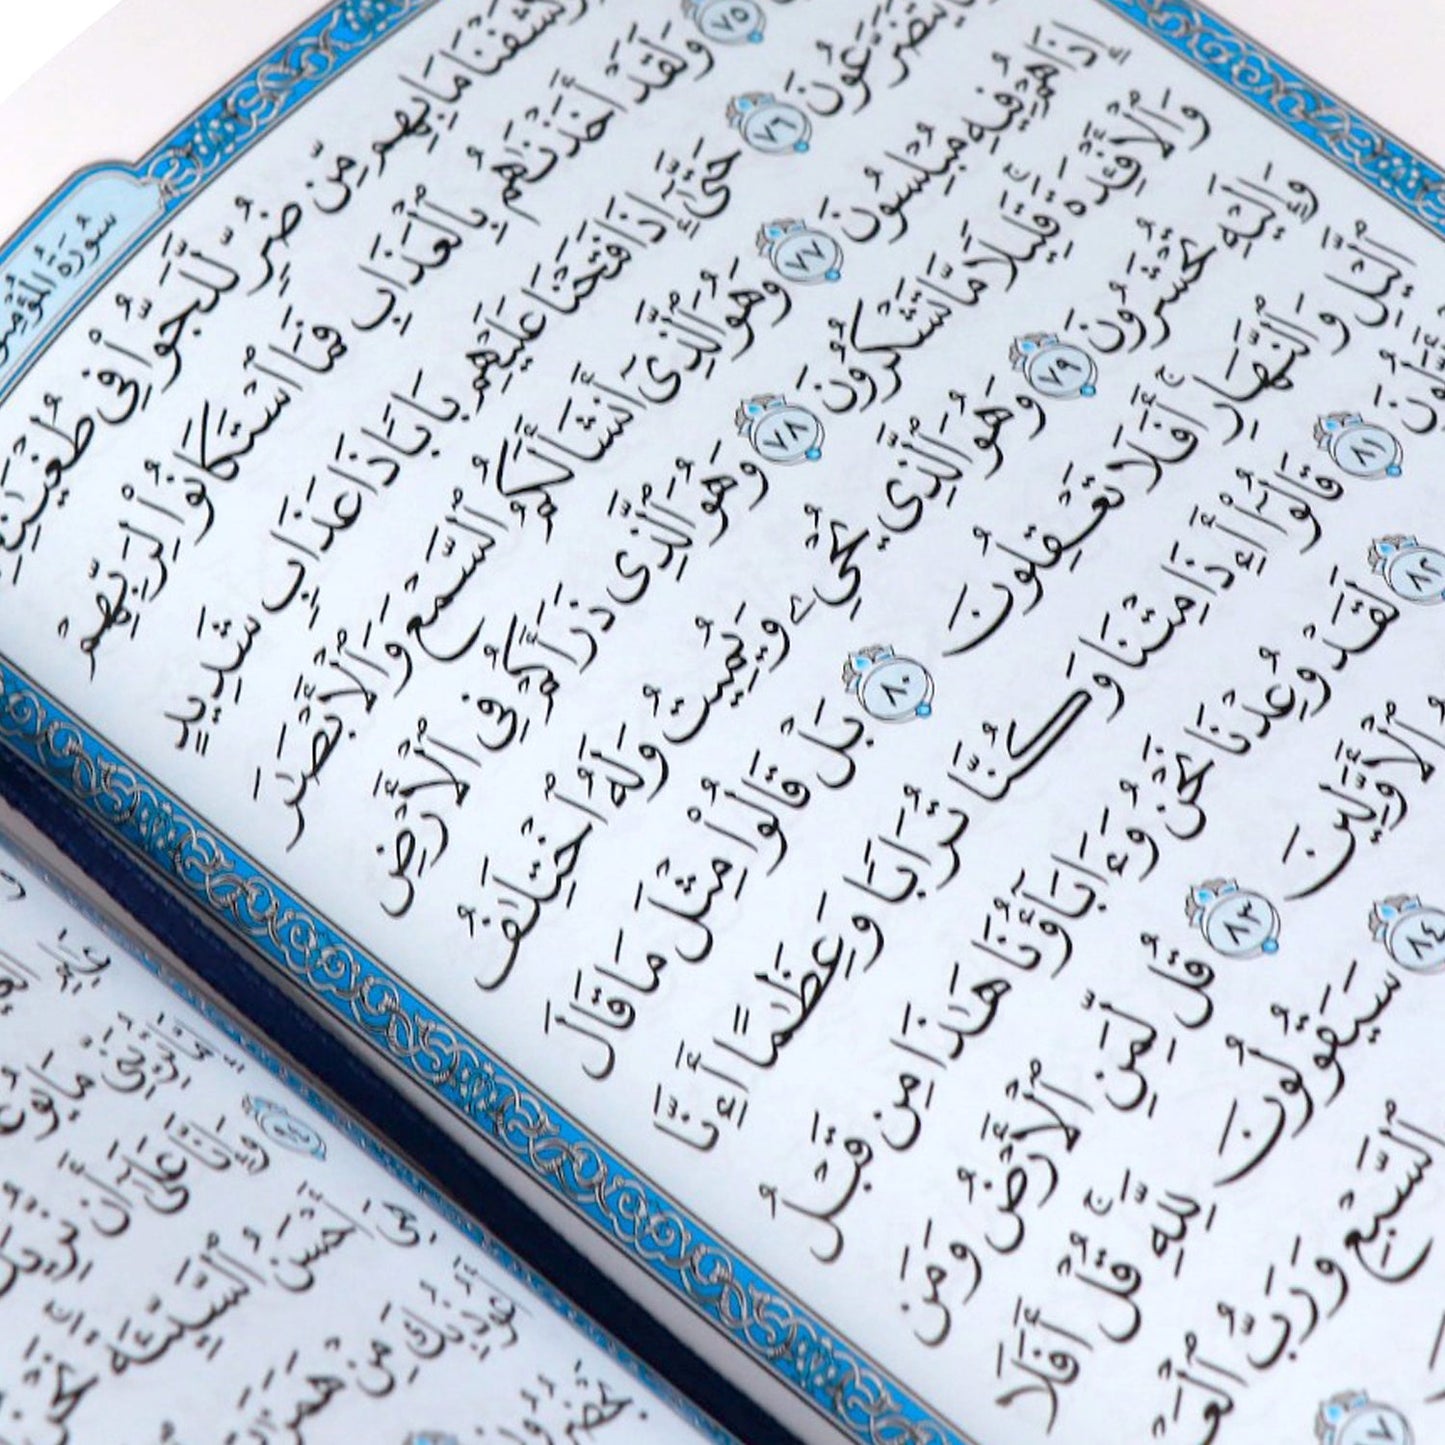 سُورَةُ المُؤْمِنُو
كَشَفْنَا مَا بِهِم مِّن ضُرٍّ لَّلَجُّوا۟ فِى طُغْيَـٰنِهِ
٧٥ وَلَقَدْ أَخَذْنَـٰهُم بِٱلْعَذَابِ فَمَا ٱسْتَكَانُوا۟ لِرَبِّهِمْ
يَتَضَرَّعُونَ ٧٦ حَتَّىٰٓ إِذَا فَتَحْنَا عَلَيْهِم بَابًا ذَا عَذَابٍ شَدِيدٍ
إِذَا هُمْ فِيهِ مُبْلِسُونَ ٧٧ وَهُوَ ٱلَّذِىٓ أَنشَأَ لَكُمُ ٱلسَّمْعَ وَٱلْأَبْصَـٰرَ
وَٱلْأَفْـِٔدَةَ ۚ قَلِيلًا مَّا تَشْكُرُونَ ٧٨ وَهُوَ ٱلَّذِى ذَرَأَكُمْ فِى ٱلْأَرْضِ
وَإِلَيْهِ تُحْشَرُونَ ٧٩ وَهُوَ ٱلَّذِى يُحْىِۦ وَيُمِيتُ وَلَهُ ٱخْتِلَـٰفُ
ٱلَّيْلِ وَٱلنَّهَارِ ۚ أَفَلَا تَعْقِلُونَ ٨٠ بَلْ قَالُوا۟ مِثْلَ مَا قَالَ
٨١ قَالُوٓا۟ أَءِذَا مِتْنَا وَكُنَّا تُرَابًا وَعِظَـٰمًا أَءِنَّا
٨٢ لَقَدْ وُعِدْنَا نَحْنُ وَءَابَآؤُنَا هَـٰذَا مِن قَبْلُ
ٱلْأَوَّلِينَ ٨٣ قُل لِّمَنِ ٱلْأَرْضُ وَمَن
٨٤ سَيَقُولُونَ لِلَّهِ ۚ قُلْ أَفَلَا
ٱلسَّبْعِ وَرَبُّ ٱلْعَ
وَإِنَّا عَلَىٰٓ أَن نُّرِيَكَ
هِىَ أَحْسَنُ ٱلسَّيِّئَةَ ۚ نَحْنُ
أَعُوذُ بِكَ مِنْ هَمَزَٰ